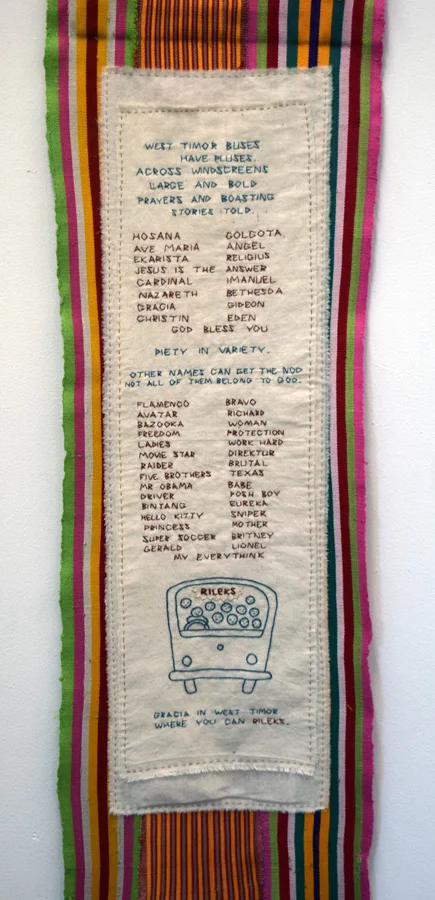 WEST TIMOR BUSES
HAVE PLUSES.
ACROSS WINDSCREENS
LARGE AND BOLD
PRAYERS AND BOASTING
STORIES TOLD.
HOSANA GOLGOTA
AVE MARIA ANGEL
EKARISTA RELIGIUS
JESUS IS THE ANSWER
CARDINAL IMANUEL
NAZARETH BETHESDA
GRACIA GIDEON
CHRISTIN EDEN
GOD BLESS YOU
PIETY IN VARIETY.
OTHER NAMES CAN GET THE NOD
NOT ALL OF THEM BELONG TO GOD.
FLAMENCO BRAVO
AVATAR RICHARD
BAZOOKA WOMAN
FREEDOM PROTECTION
LADIES WORK HARD
MOVIE STAR DIREKTUR
RAIDER BRUTAL
FIVE BROTHERS TEXAS
MR OBAMA BABE
DRIVER POSH BOY
BINTANG EUREKA
HELLO KITTY SNIPER
PRINCESS MOTHER
SUPER SOCCER BRITNEY
GERALD LIONEL
MY EVERYTHINK
RILEKS
GRACIA IN WEST TIMOR
WHERE YOU CAN RILEKS.